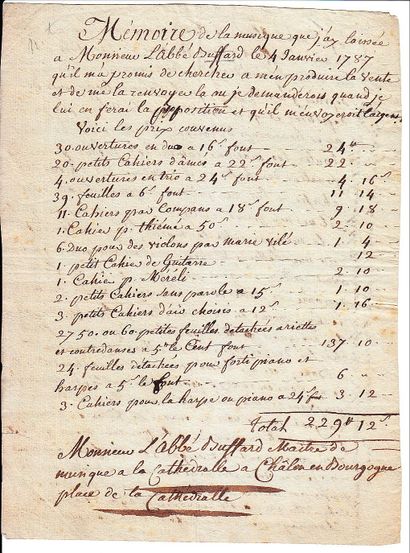 Mémoire de la musique que j'ay laissée
a Monsieur L'Abbé Buffard le 4 Janvier 1787
qu'il m'a promis de chercher a m'en produire la vente
et de me la renvoyer la ou je demanderois quand je
lui en ferai la proposition et qu'il m'envoyeroit l'argent
Voici les prix convenus
30. ouvertures en duo a 16.s font 24.tt
20. petits Cahiers d'âmes a 22.s font 22.
4. ouvertures en trio a 24.s font 4 16.s
39. feuilles a 6.s font 11 14
11 Cahiers par Compans a 18.s font 9. 18
1. Cahier p. thieme a 50.s 2. 10
6 Duo pour des violons par marie 1. 4
1. petit Cahier de Guitarre 12
1. Cahier p. Méréli 2. 10
2. petits Cahiers sans parole a 15.s 1. 10
3. petits Cahiers d'airs choisis a 12.s 1. 16
2750. ou 60. petites feuilles detachées ariette
et contredanses a 5.tt le Cent font 137. 10
24. feuilles detachées pour forti piano et
harpes a 5.s le font 6
3. Cahiers pour la harpe ou piano a 24.s 3 12
Total 229.tt 12.s
Monsieur L'Abbé Buffard Maitre de
musique a la Cathédralle a Châlon en Bourgogne
place de la Cathédralle